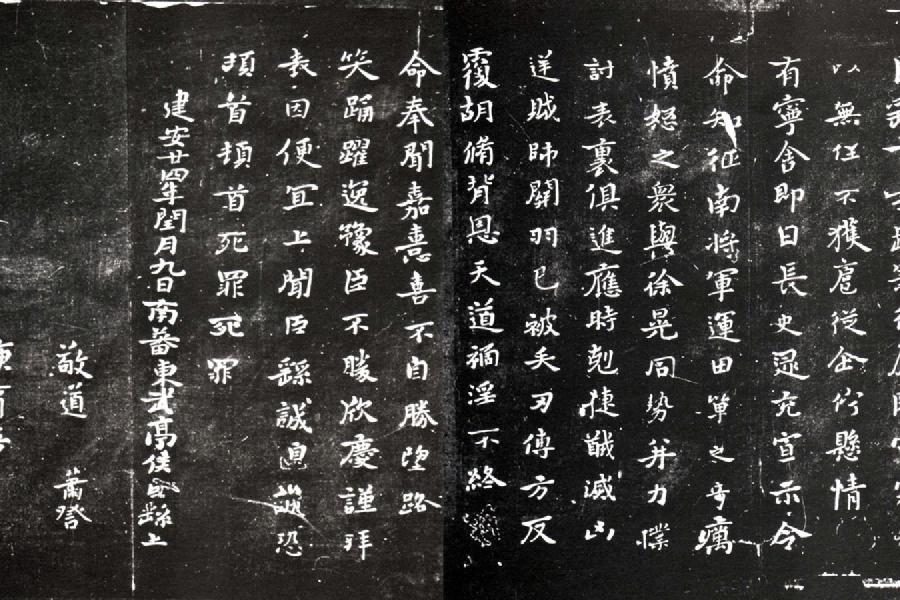 以無任不獲扈從企佇懸情
有寧舍即日長史逯充宣示令
命知征南將軍運田單之奇癘
憤怒之衆與徐晃同勢并力撲
討表裏俱進應時剋捷馘滅凶
逆賊帥關羽已被矢刃傅方反
覆胡脩背恩天道禍淫不終
命奉聞嘉憙喜不自勝望路
笑踊躍逸豫臣不勝欣慶謹拜
表因便宜上聞臣繇誠惶誠恐
頓首頓首死罪死罪
建安廿四年閏月九日南蕃東武亭侯臣繇上
敬道 蕭